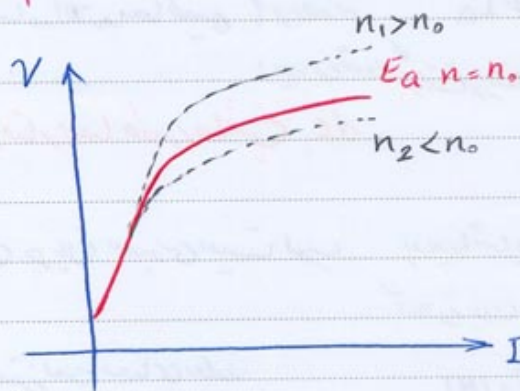 n₁>n₀
V
Eₐ n=n₀
n₂<n₀
I